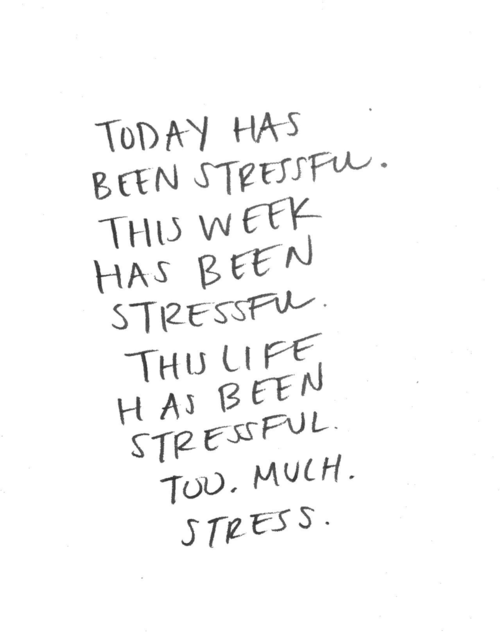 TODAY HAS
BEEN STRESSFUL.
THIS WEEK
HAS BEEN
STRESSFUL.
THIS LIFE
HAS BEEN
STRESSFUL.
TOO. MUCH.
STRESS.